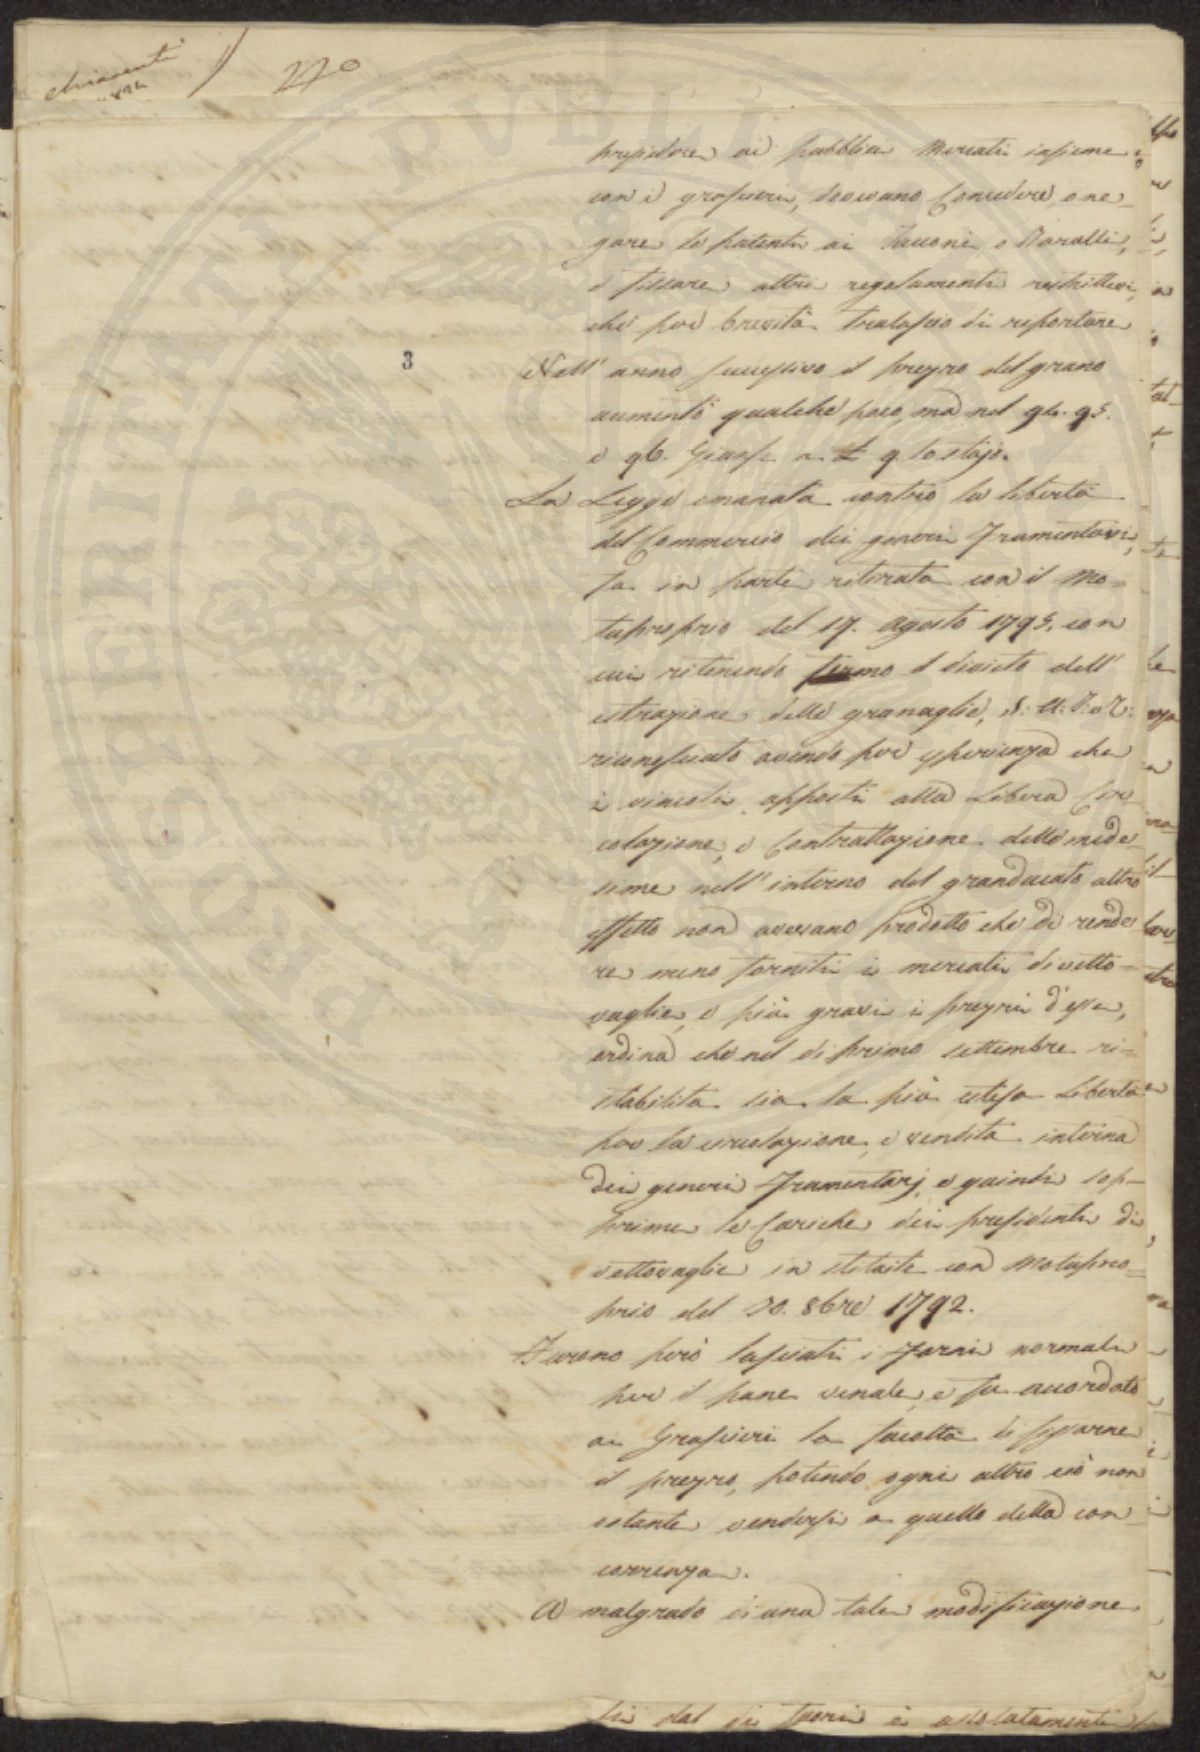 chiarenti
270
presiedere ai pubblici Mercati insieme
con i grascieri, dovevano Concedere, o ne-
gare le patenti ai Trecconi o Barulli,
e fissare altri regolamenti restrittivi,
che per brevità tralascio di riportare
3
Nell' anno successivo il prezzo del grano
aumentò qualche poco, ma nel 94. 95.
e 96. Giunse a £ 9. lo stajo.
La Legge emanata contro la libertà
del Commercio dei generi Frumentarj,
fu in parte ritirata con il Mo-
tuproprio del 17. agosto 1795. con
cui ritenendo fermo il divieto dell'
estrazione delle granaglie, S: A: R:
riconosciuto avendo per esperienza che
i vincoli apposti alla Libera Cir
colazione, e Contrattazione delle mede
sime nell' interno del granducato altro
effetto non avevano prodotto che di rende
re meno forniti i mercati di vetto-
vaglie, e più gravi i prezzi d'esse,
ordina che nel dì primo settembre ri-
stabilita sia la più estesa Libertà
per la circolazione, e vendita interna
dei generi Frumentarj, e quindi sop-
prime le Cariche dei presidenti di
vettovaglie istituite con Motupro-
prio del 8bre 1792.
Furono però lasciati i Forni normali
per il pane venale, e fu accordato
ai Grascieri la facoltà di fissarne
il prezzo, potendo ogni altro ciò non
ostante vendersi a quello della con
correnza.
A malgrado di una tale modificazione
dal di fuori è assolutamente